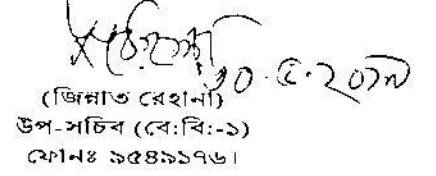 ১০.৫.২০১৭
(জিন্নাত রেহানা)
উপ-সচিব (বে:বি:-১)
ফোনঃ ৯৫৪৯১৭৬।